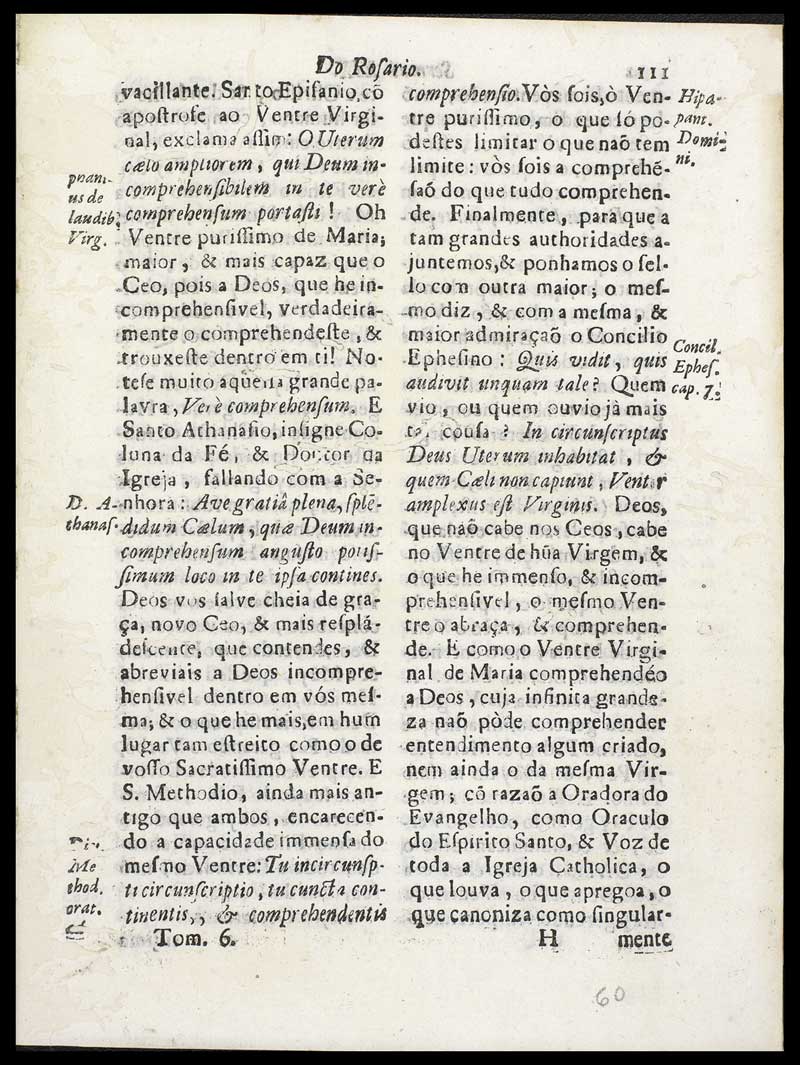 Do Roſario.
111
vacillante. Santo Epifanio, cõ
apoſtrofe ao Ventre Virgi-
nal, exclama aſſim: O Uterum
cælo ampliorem, qui Deum in-
comprehenſibilem in te verè
comprehenſum portaſti! Oh
Ventre puriſſimo de Maria;
maior, & mais capaz que o
Ceo, pois a Deos, que he in-
comprehenſivel, verdadeira-
mente o comprehendeſte, &
trouxeſte dentro em ti! No-
teſe muito aquella grande pa-
lavra, Verè comprehenſum. E
Santo Athanaſio, inſigne Co-
luna da Fé, & Doutor da
Igreja, fallando com a Se-
nhora: Ave gratiâ plena, ſplẽ-
didum Cælum, quæ Deum in-
comprehenſum anguſto potiſ-
ſimum loco in te ipſa contines.
Deos vos ſalve cheia de gra-
ça, novo Ceo, & mais reſplã-
decente, que contendes, &
abreviais a Deos incompre-
henſivel dentro em vós meſ-
ma; & o que he mais, em hum
lugar tam eſtreito como o de
voſſo Sacratiſſimo Ventre. E
S. Methodio, ainda mais an-
tigo que ambos, encarecen-
do a capacidade immenſa do
meſmo Ventre: Tu incircunſp-
ti circunſcriptio, tu cuncta con-
tinentis,, & comprehendentis
Tom. 6.
us de
laudib.
Virg.
D. A-
thanaſ.
Me
thod.
orat.
comprehenſio. Vòs ſois, ò Ven-
tre puriſſimo, o que ſó po-
deſtes limitar o que naõ tem
limite: vòs ſois a comprehẽ-
ſaõ do que tudo comprehen-
de. Finalmente, para que a
tam grandes authoridades a-
juntemos, & ponhamos o ſel-
lo com outra maior; o meſ-
mo diz, & com a meſma, &
maior admiraçaõ o Concilio
Epheſino: Quis vidit, quis
audivit unquam tale? Quem
vio, ou quem ouvio jà mais
tal couſa? In circunſcriptus
Deus Uterum inhabitat, &
quem Cæli non capiunt, Venter
amplexus eſt Virginis. Deos,
que naõ cabe nos Ceos, cabe
no Ventre de hũa Virgem, &
o que he immenſo, & incom-
prehenſivel, o meſmo Ven-
tre o abraça, & comprehen-
de. E como o Ventre Virgi-
nal de Maria comprehendéo
a Deos, cuja infinita grande-
za naõ pòde comprehender
entendimento algum criado,
nem ainda o da meſma Vir-
gem; cõ razaõ a Oradora do
Evangelho, como Oraculo
do Eſpirito Santo, & Voz de
toda a Igreja Catholica, o
que louva, o que apregoa, o
que canoniza como ſingular-
H mente
Hipa-
pant.
Domi-
ni.
Concil.
Epheſ.
cap. 7.
60